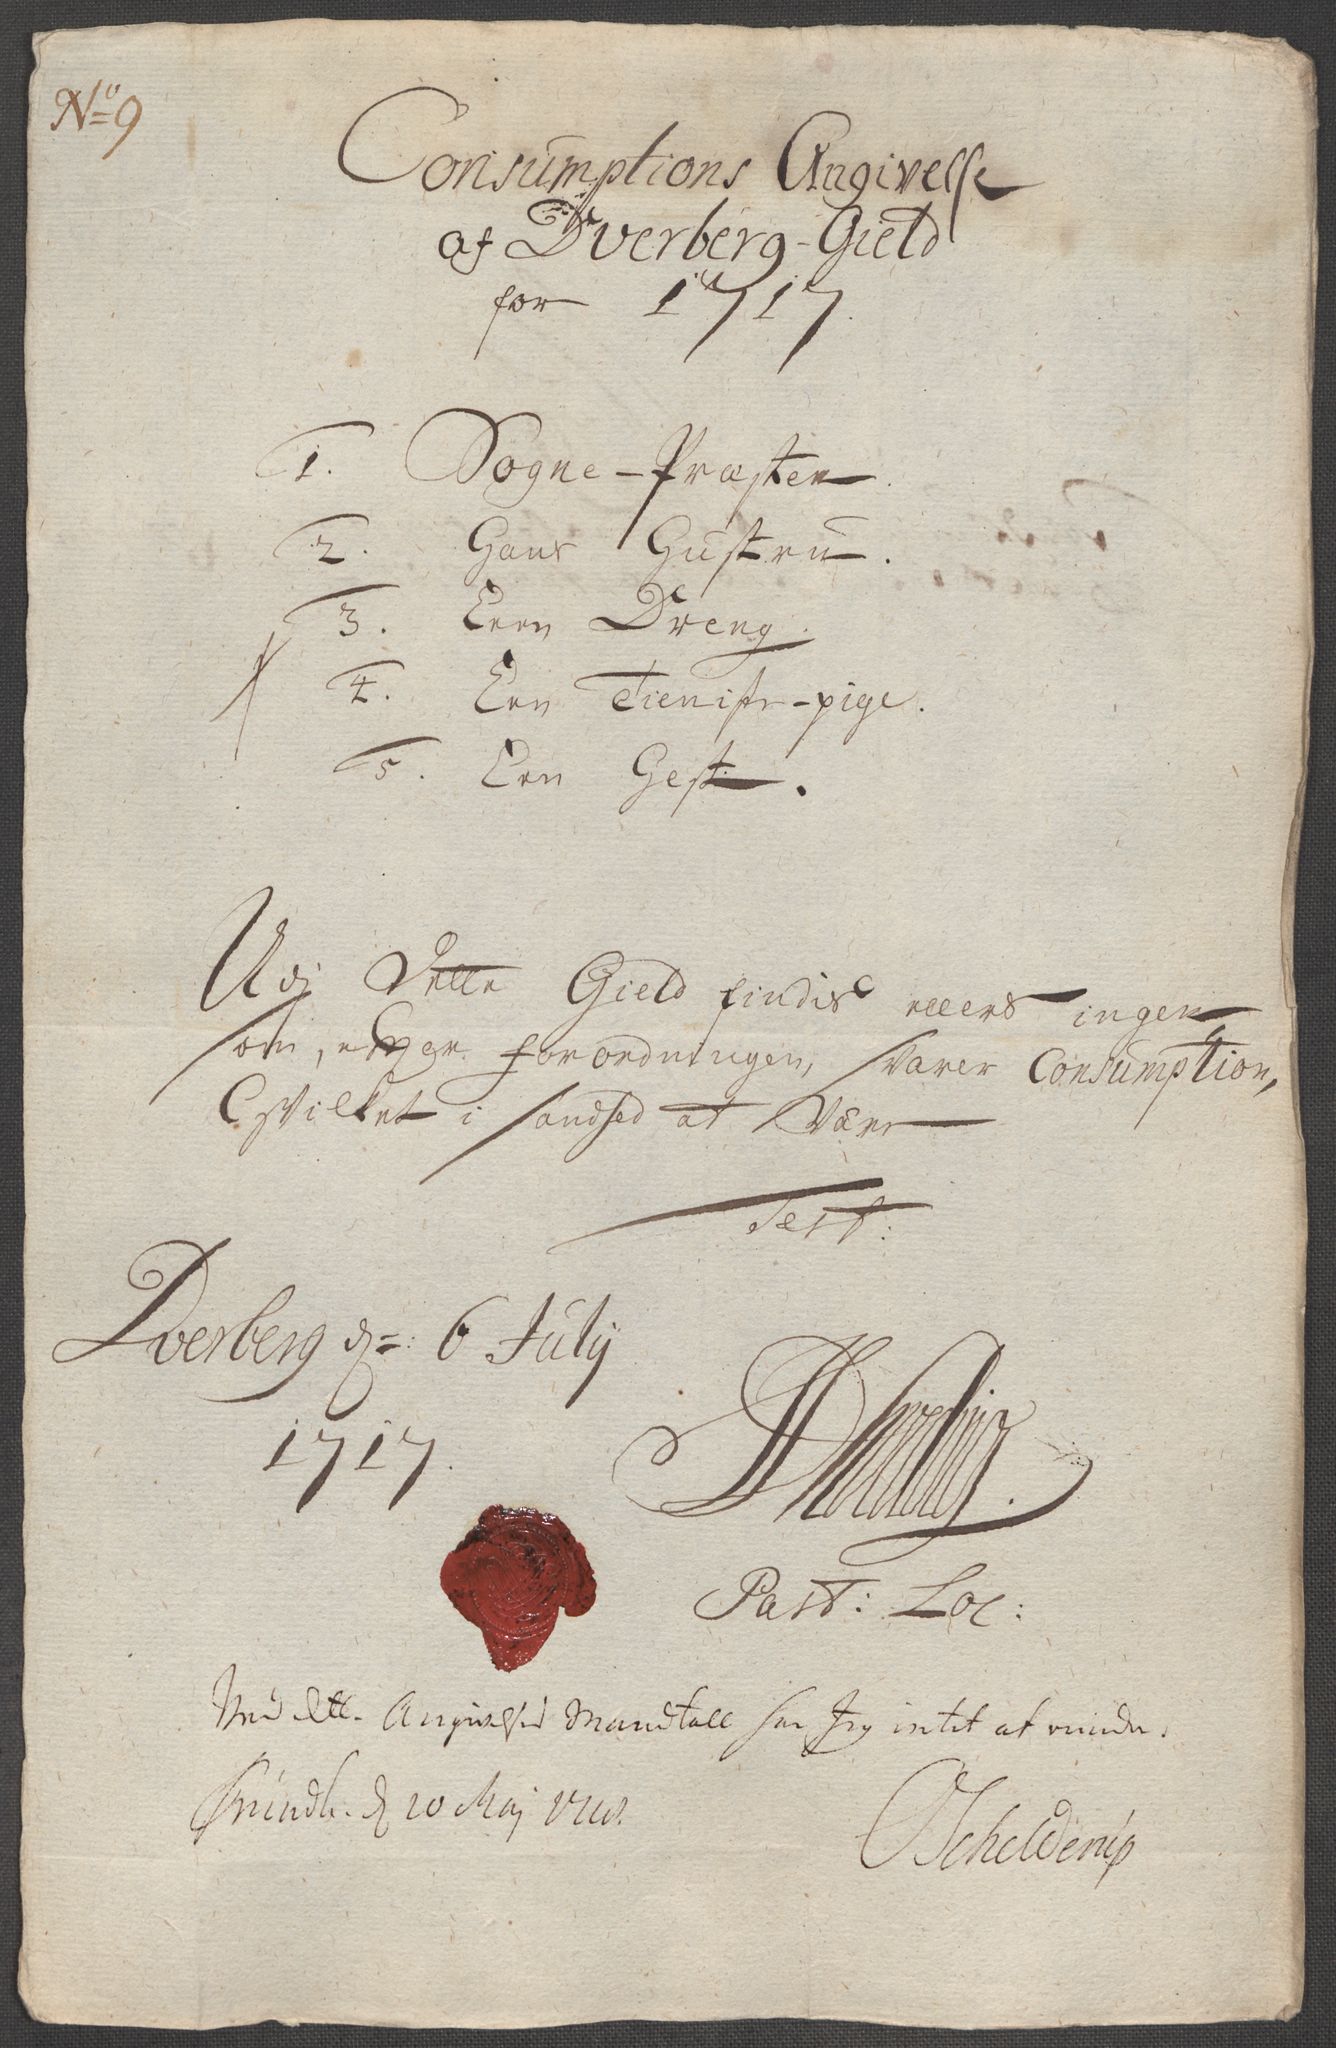 No 9
Consumptions Angivelse
af Dverberg-Gield
for 1717.
1. Sogne-Præsten.
2. Hans Hustru.
3. Een Dreng.
4. Een Tieniste-pige.
5. Een Gest.
Udj dette Gield findis ellers ingen
som, efter forordningen, svarer Consumption,
Hvilket i sandhed at være
Test:
Dverberg d=: 6 July
1717.
Past: Loc:
Ved dette Angivelsis Mandtall har Jeg intet at minde.
d 20 Maj 1718.
OSchelderup